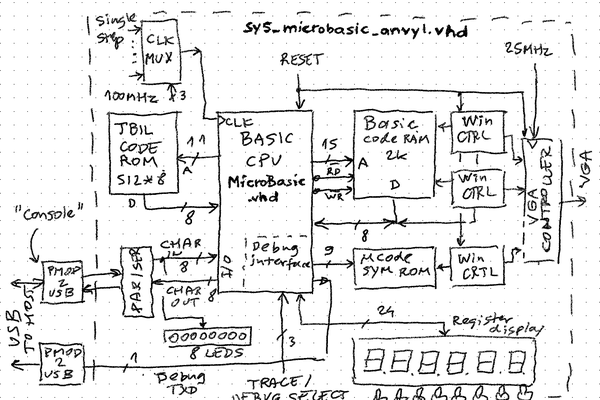 sys_microbasic_anvyl.vhd
Single
Step
CLK
MUX
100MHz
3
RESET
25MHz
TBIL
CODE
ROM
512*8
A
D
11
8
CLK
BASIC
CPU
MicroBasic
.vhd
Debug
interface
I/O
15
RD
WR
Basic
code RAM
2k
A
D
8
Win
CTRL
Win
CTRL
Win
CRTL
VGA
CONTROLLER
VGA
9
Mcode
SYM ROM
"Console"
PMOD
2
USB
USB
TO HOST
PMOD
2
USB
CHAR
IN
8
CHAR
OUT
8
8 LEDS
1
Debug
TXD
TRACE/
DEBUG SELECT
3
24
Register
display